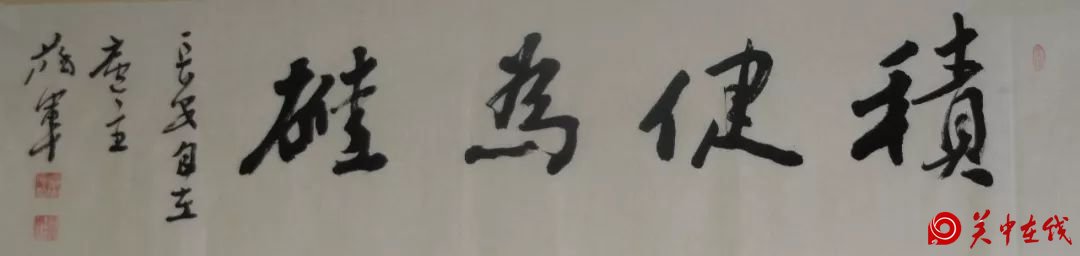 積健為雄
長安自在
庵主
軍
关中在线